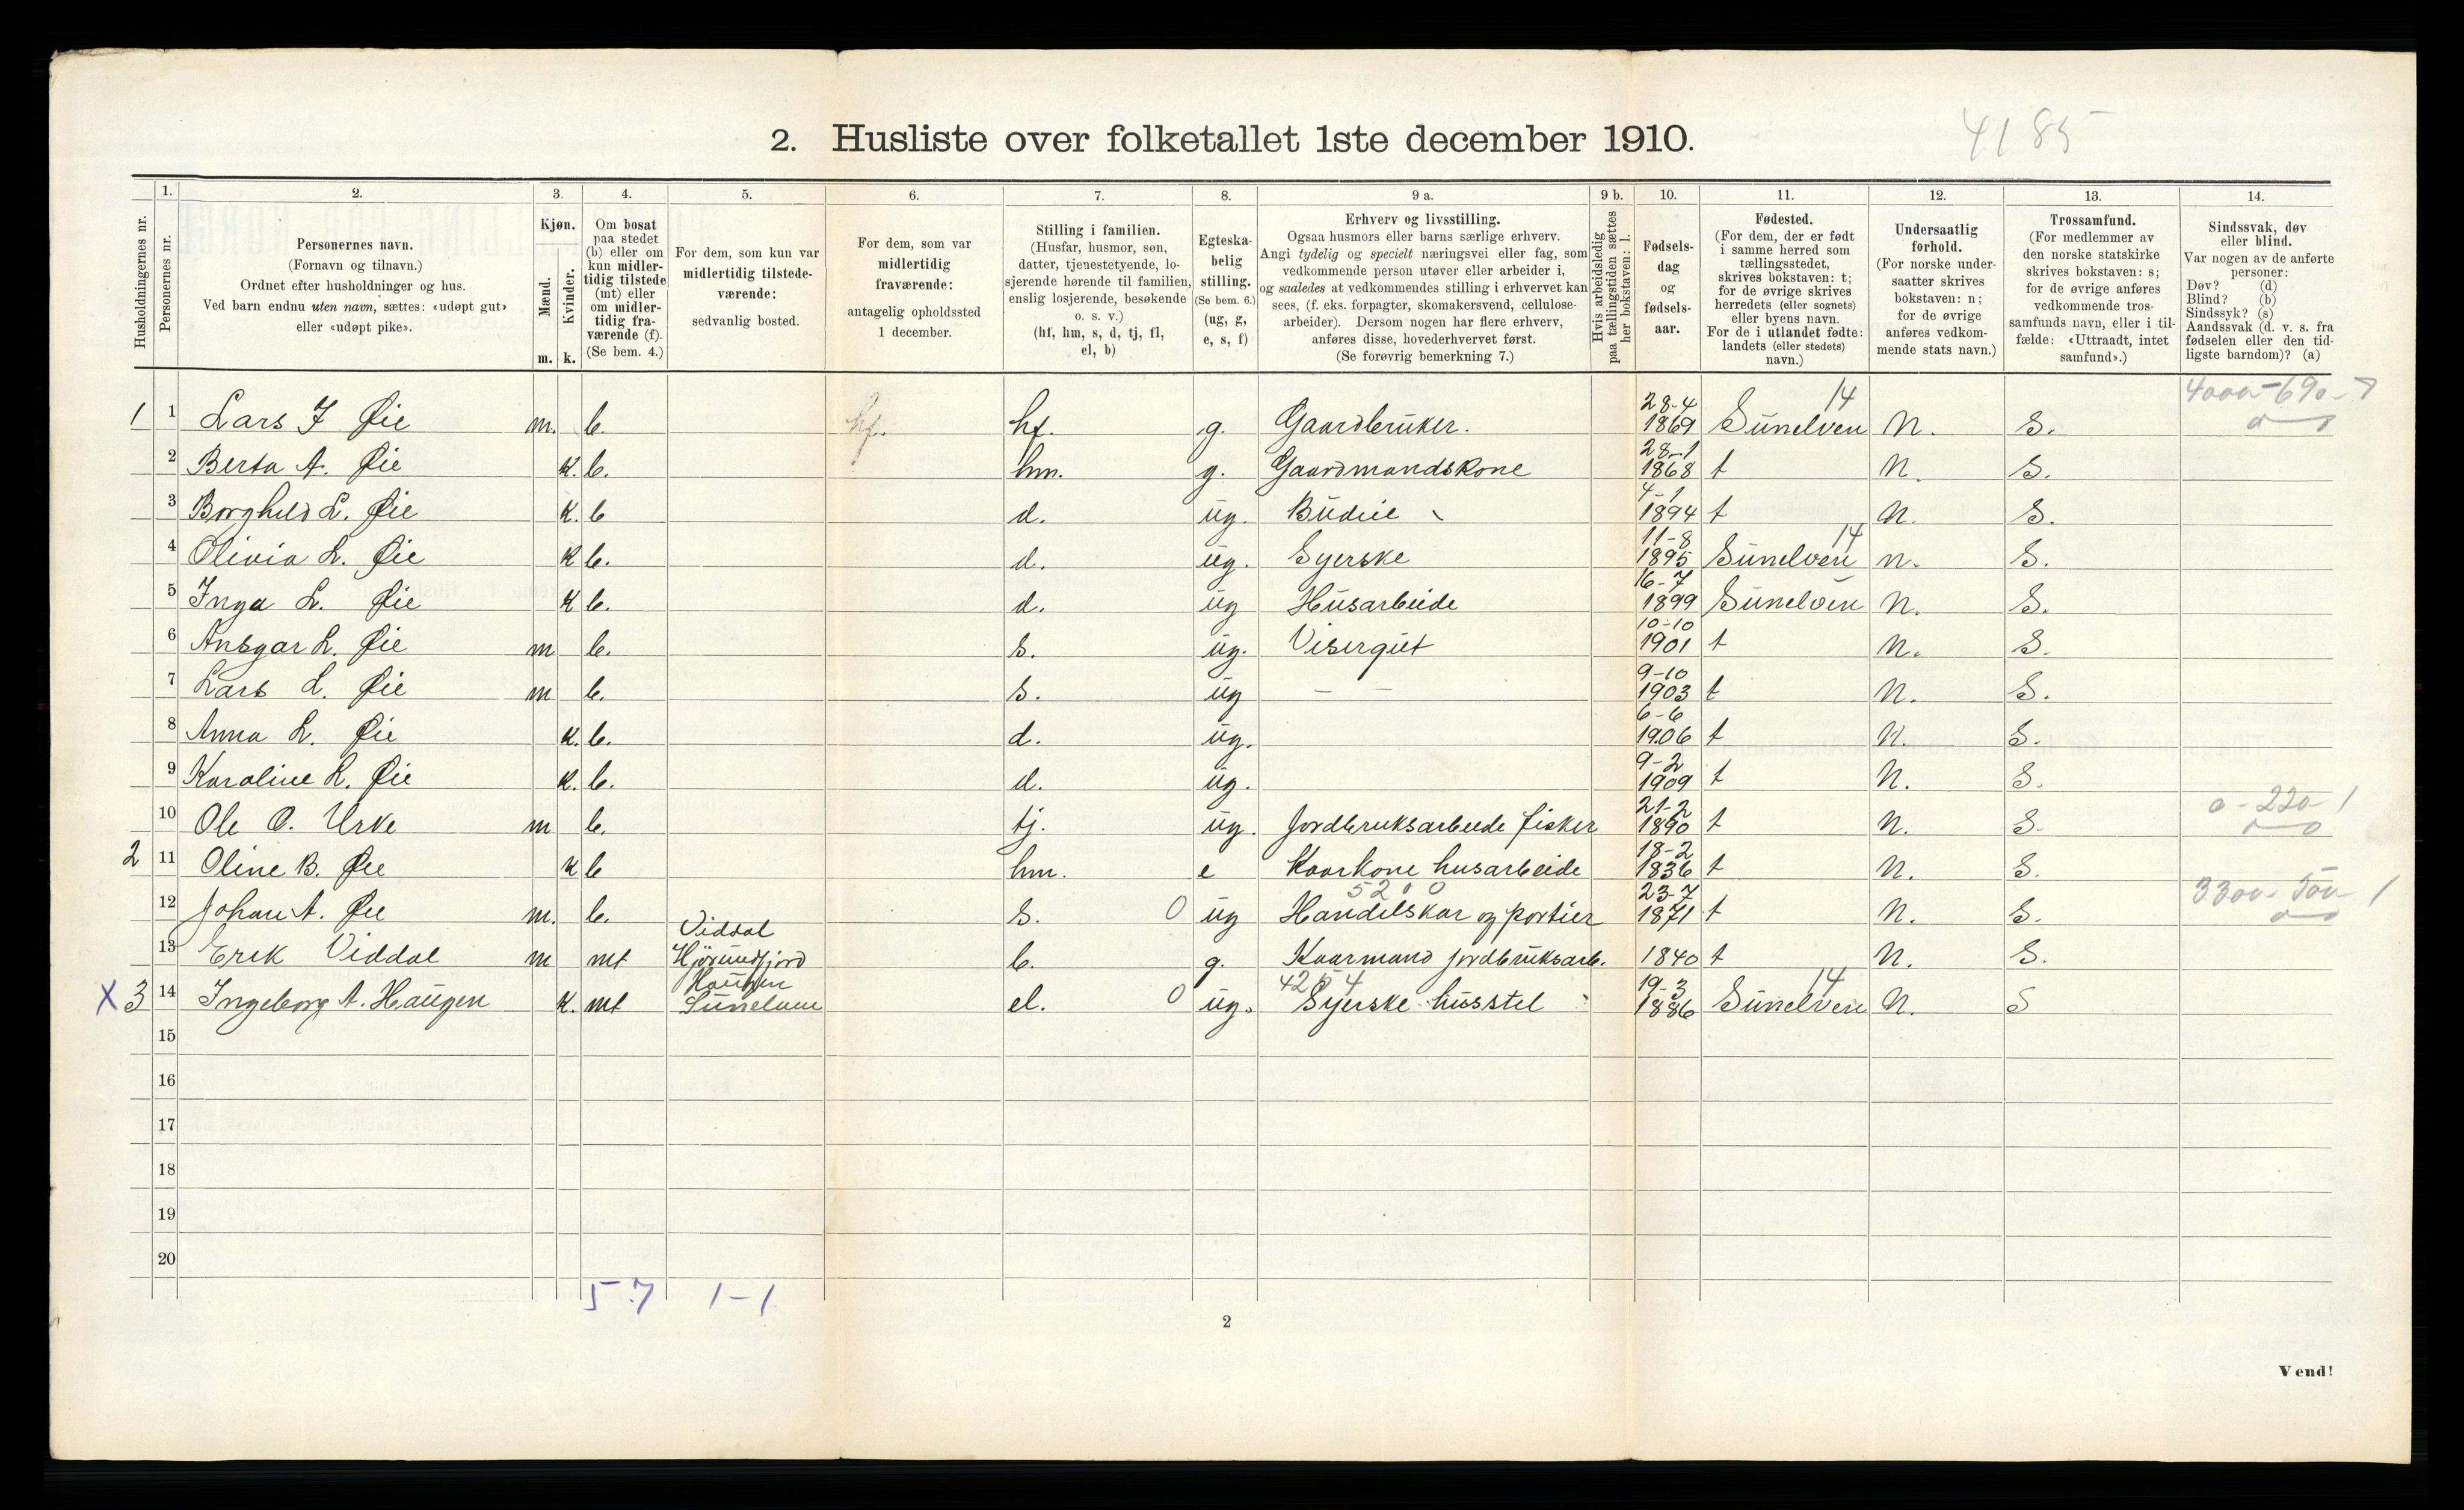 4185
2. Husliste over folketallet 1ste december 1910.
Husholdningernes nr.
1. Personernes nr.
2. Personernes navn.
(Fornavn og tilnavn.)
Ordnet efter husholdninger og hus.
Ved barn endnu uten navn, sættes: «udøpt gut»
eller «udøpt pike».
3. Kjøn.
Mænd. Kvinder.
m. k.
4. Om bosat
paa stedet
(b) eller om
kun midler-
tidig tilstede
(mt) eller
om midler-
tidig fra-
værende (f).
(Se bem. 4.)
5. For dem, som kun var
midlertidig tilstede-
værende:
sedvanlig bosted.
6. For dem, som var
midlertidig
fraværende:
antagelig opholdssted
1 december.
7. Stilling i familien.
(Husfar, husmor, søn,
datter, tjenestetyende, lo-
sjerende hørende til familien,
enslig losjerende, besøkende
o. s. v.)
(hf, hm, s, d, tj, fl,
el, b)
8. Egteska-
belig
stilling.
(Se bem. 6.)
(ug, g,
e, s, f)
9 a. Erhverv og livsstilling.
Ogsaa husmors eller barns særlige erhverv.
Angi tydelig og specielt næringsvei eller fag, som
vedkommende person utøver eller arbeider i,
og saaledes at vedkommendes stilling i erhvervet kan
sees, (f. eks. forpagter, skomakersvend, cellulose-
arbeider). Dersom nogen har flere erhverv,
anføres disse, hovederhvervet først.
(Se forøvrig bemerkning 7.)
9 b. Hvis arbeidsledig
paa tællingstiden sættes
her bokstaven: l.
10. Fødsels-
dag
og
fødsels-
aar.
11. Fødested.
(For dem, der er født
i samme herred som
tællingsstedet,
skrives bokstaven: t;
for de øvrige skrives
herredets (eller sognets)
eller byens navn.
For de i utlandet fødte:
landets (eller stedets)
navn.)
12. Undersaatlig
forhold.
(For norske under-
saatter skrives
bokstaven: n;
for de øvrige
anføres vedkom-
mende stats navn.)
13. Trossamfund.
(For medlemmer av
den norske statskirke
skrives bokstaven: s;
for de øvrige anføres
vedkommende tros-
samfunds navn, eller i til-
fælde: «Uttraadt, intet
samfund».)
14. Sindssvak, døv
eller blind.
Var nogen av de anførte
personer:
Døv? (d)
Blind? (b)
Sindssyk? (s)
Aandssvak (d. v. s. fra
fødselen eller den tid-
ligste barndom)? (a)
1 1 Lars J Øie m. b. hf. hf. g. Gaardbruker. 28-4 1869 Sunelven 14 N. S. 4000-690-7
2 Berta A. Øie k. b. hm. g. Gaardmandskone 28-1 1868 t N. S.
3 Borghild L. Øie k. b d. ug. Budeie 4-1 1894 t N. S.
4 Olivia L. Øie k b. d. ug. Syerske 11-8 1895 Sunelven 14 n. S.
5 Inga L. Øie k b. d. ug Husarbeide 16-7 1899 Sunelven N. S.
6 Ansgar L. Øie m b. s. ug. Visergut 10-10 1901 t N. S.
7 Lars L. Øie m b. s. ug — — 9-10 1903 t N. S.
8 Anna L. Øie k. b. d. ug. 6-6 1906 t N. S.
9 Karoline L. Øie k. b. d. ug. 9-2 1909 t N. S.
10 Ole O. Urke m b. tj. ug. Jordbruksarbeide fisker 21-2 1890 t N. S. 0-220-1
2 11 Oline B. Øie k b hm. e Kaarkone husarbeide 18-2 1836 t N. S.
12 Johan A. Øie m. b. s. 0 ug 5200 Handelskar og portier 23-7 1871 t N. S. 3300-500-1
13 Erik Viddal m mt Viddal Hjørundfjord b. g. Kaarmand jordbruksarb. 1840 t N. S.
X 3 14 Ingeborg A. Haugen k. mt Haugen Sunelven el. 0 ug. 4254 Syerske husstel 19-3 1886 Sunelven 14 N. S
15
16
17
18
19
20
5.7 1-1
2
Vend!